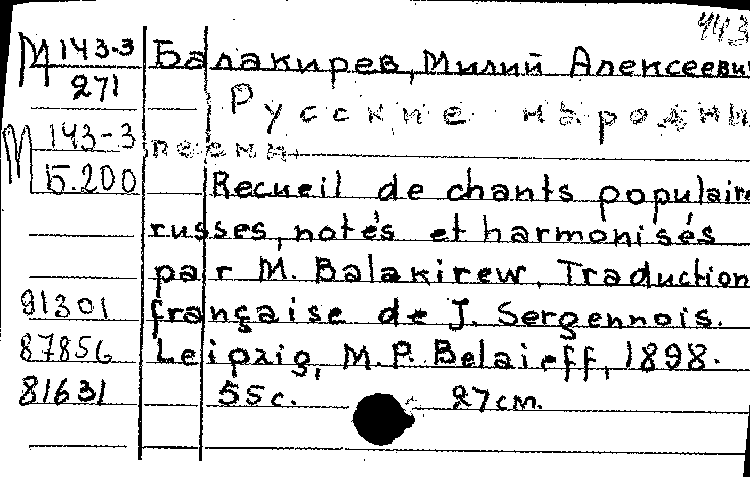 443
М 143-3 Балакирев, Милий Алексеевич
271 Русские народны
М 143-3 песни.
15.200 Recueil de chants populaire
russes, notés et harmonisés
par M. Balakirew. Traduction
91301 française de J. Sergennois.
87856 Leipzig, M.P. Belaieff, 1898.
81631 55c. 27см.